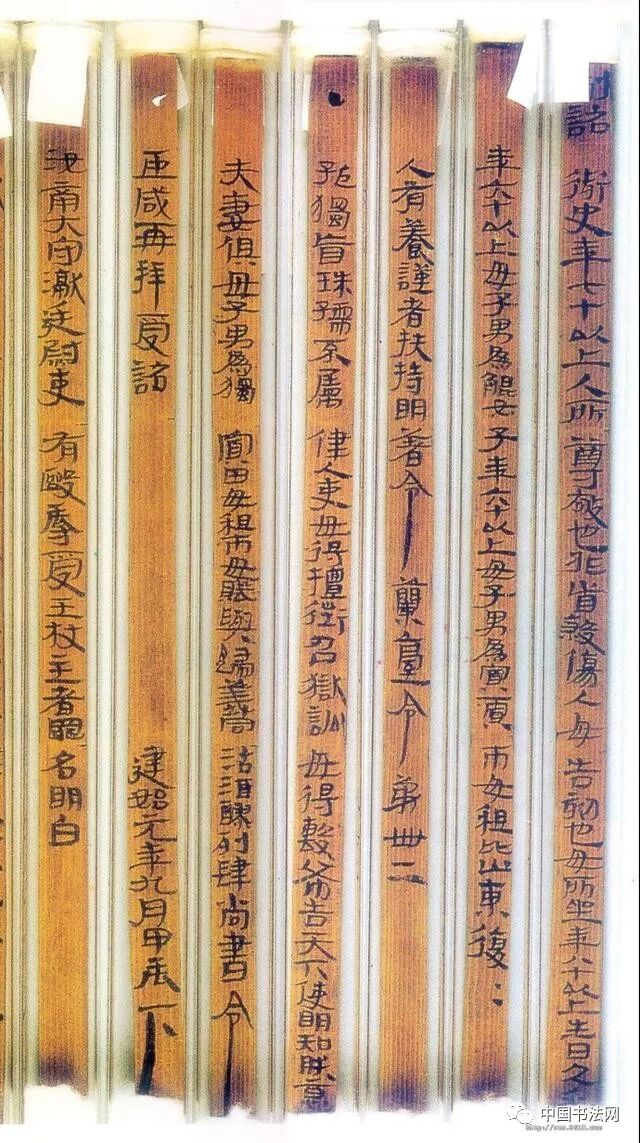 制詔 御史年七十以上人所尊敬也非首殺傷人毋告劾也毋所坐年八十以上生日久乎
年六十以上毋子男為鯤女子年六十以上毋子男為寡賈市毋租比山東復=
人有養謹者扶持明著令 蘭臺令第卌二
孤獨盲珠孺不屬律人吏毋得擅徵召獄訟毋得毄布告天下使明知朕意
夫妻俱毋子男為獨寡田毋租市毋賦與歸義同沽酒醪列肆尚書令
臣咸再拜受詔 建始元年九月甲辰下
汝南大守讞廷尉吏有毆辱受王杖主者罪名明白
中国书法网